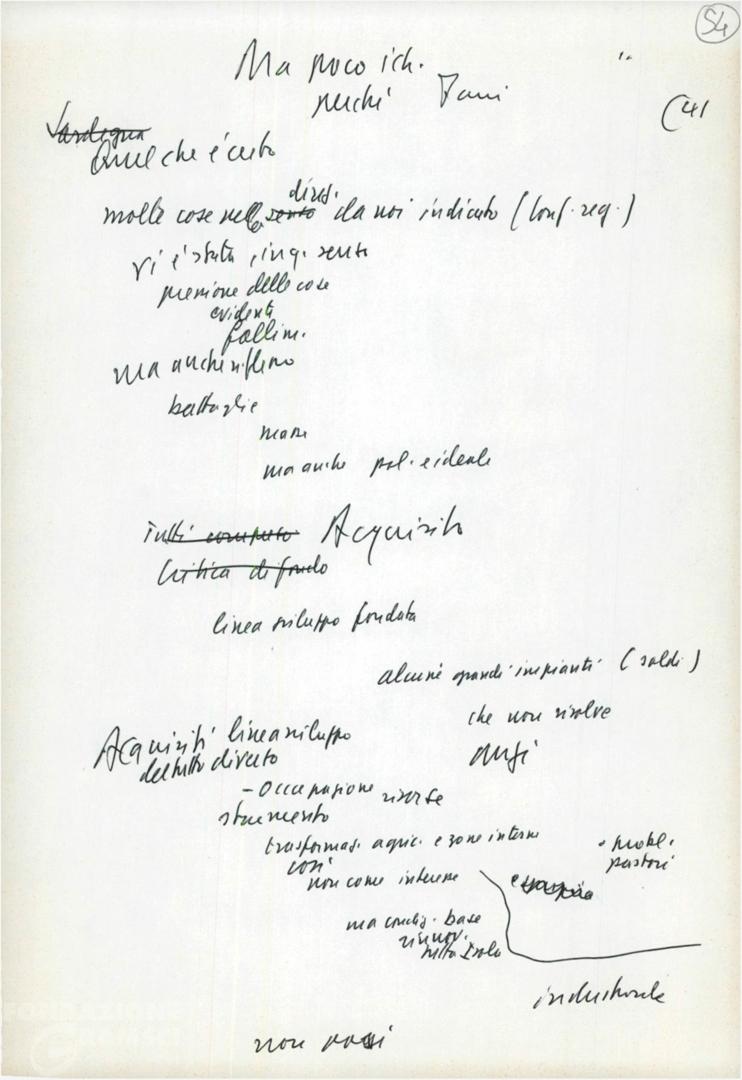 54
Ma poco ich.
perché
(41
Sardegna
Quel che è certo
direz.
molte cose nella sento da noi indicato (conf. reg.)
vi è stata in q. senso
pressione delle cose
evidenti
fallim.
ma anche riflesso
battaglie
massa
ma anche pol. e ideale
Tutti computo Acquisito
Critica di fondo
linea sviluppo fondata
alcuni grandi impianti (soldi)
che non risolve
anzi
Acquisiti linea sviluppo
del tutto diverso
- Occupazione risorse
strumento
trasformaz. agric. e zone interne
• probl. pastori
così
non come interne
ma condiz. base
rinnov.
tutta Isola
industriale
non
FONDAZIONE
GRAMSCI